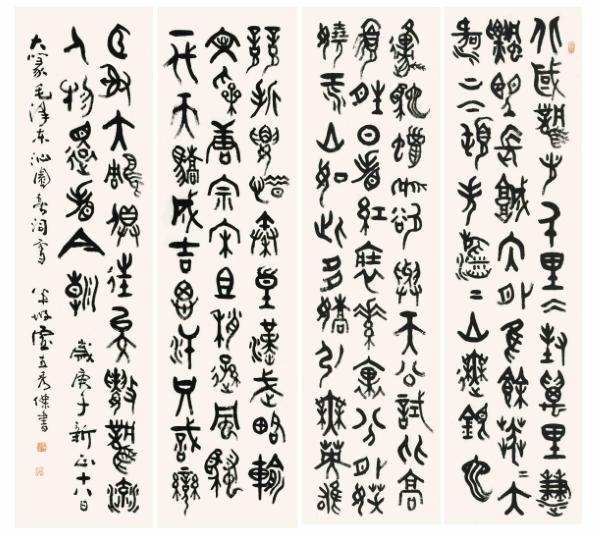 北國風光千里冰封萬里雪
飄望長城內外惟餘莽〻大
河上下頓失滔〻山舞銀蛇
原馳蠟象欲與天公試比高
須晴日看紅裝素裹分外妖
嬈江山如此多嬌引無數英雄
競折腰惜秦皇漢武略輸
文采唐宗宋且稍遜風騷
一代天驕成吉思汗只識彎
弓射大鵰俱往矣數風流
人物還看今朝 歲庚子新正十八日
大篆毛澤東沁園春詞雪 傑書